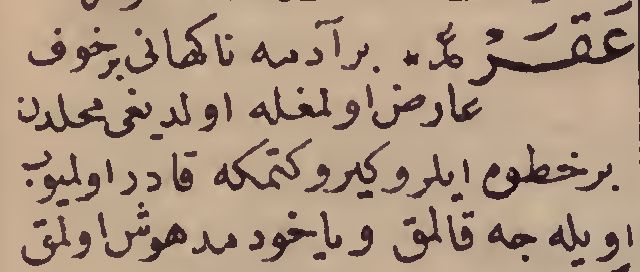 عَقَرْ * بر آدمه ناكهانى بر خوف
عارض اولمغله اولديغى محلدن
بر خطوه ايلرو كيرو كتمكه قادر اولميوب
اويله جه قالمق و ياخود مدهوش اولمق